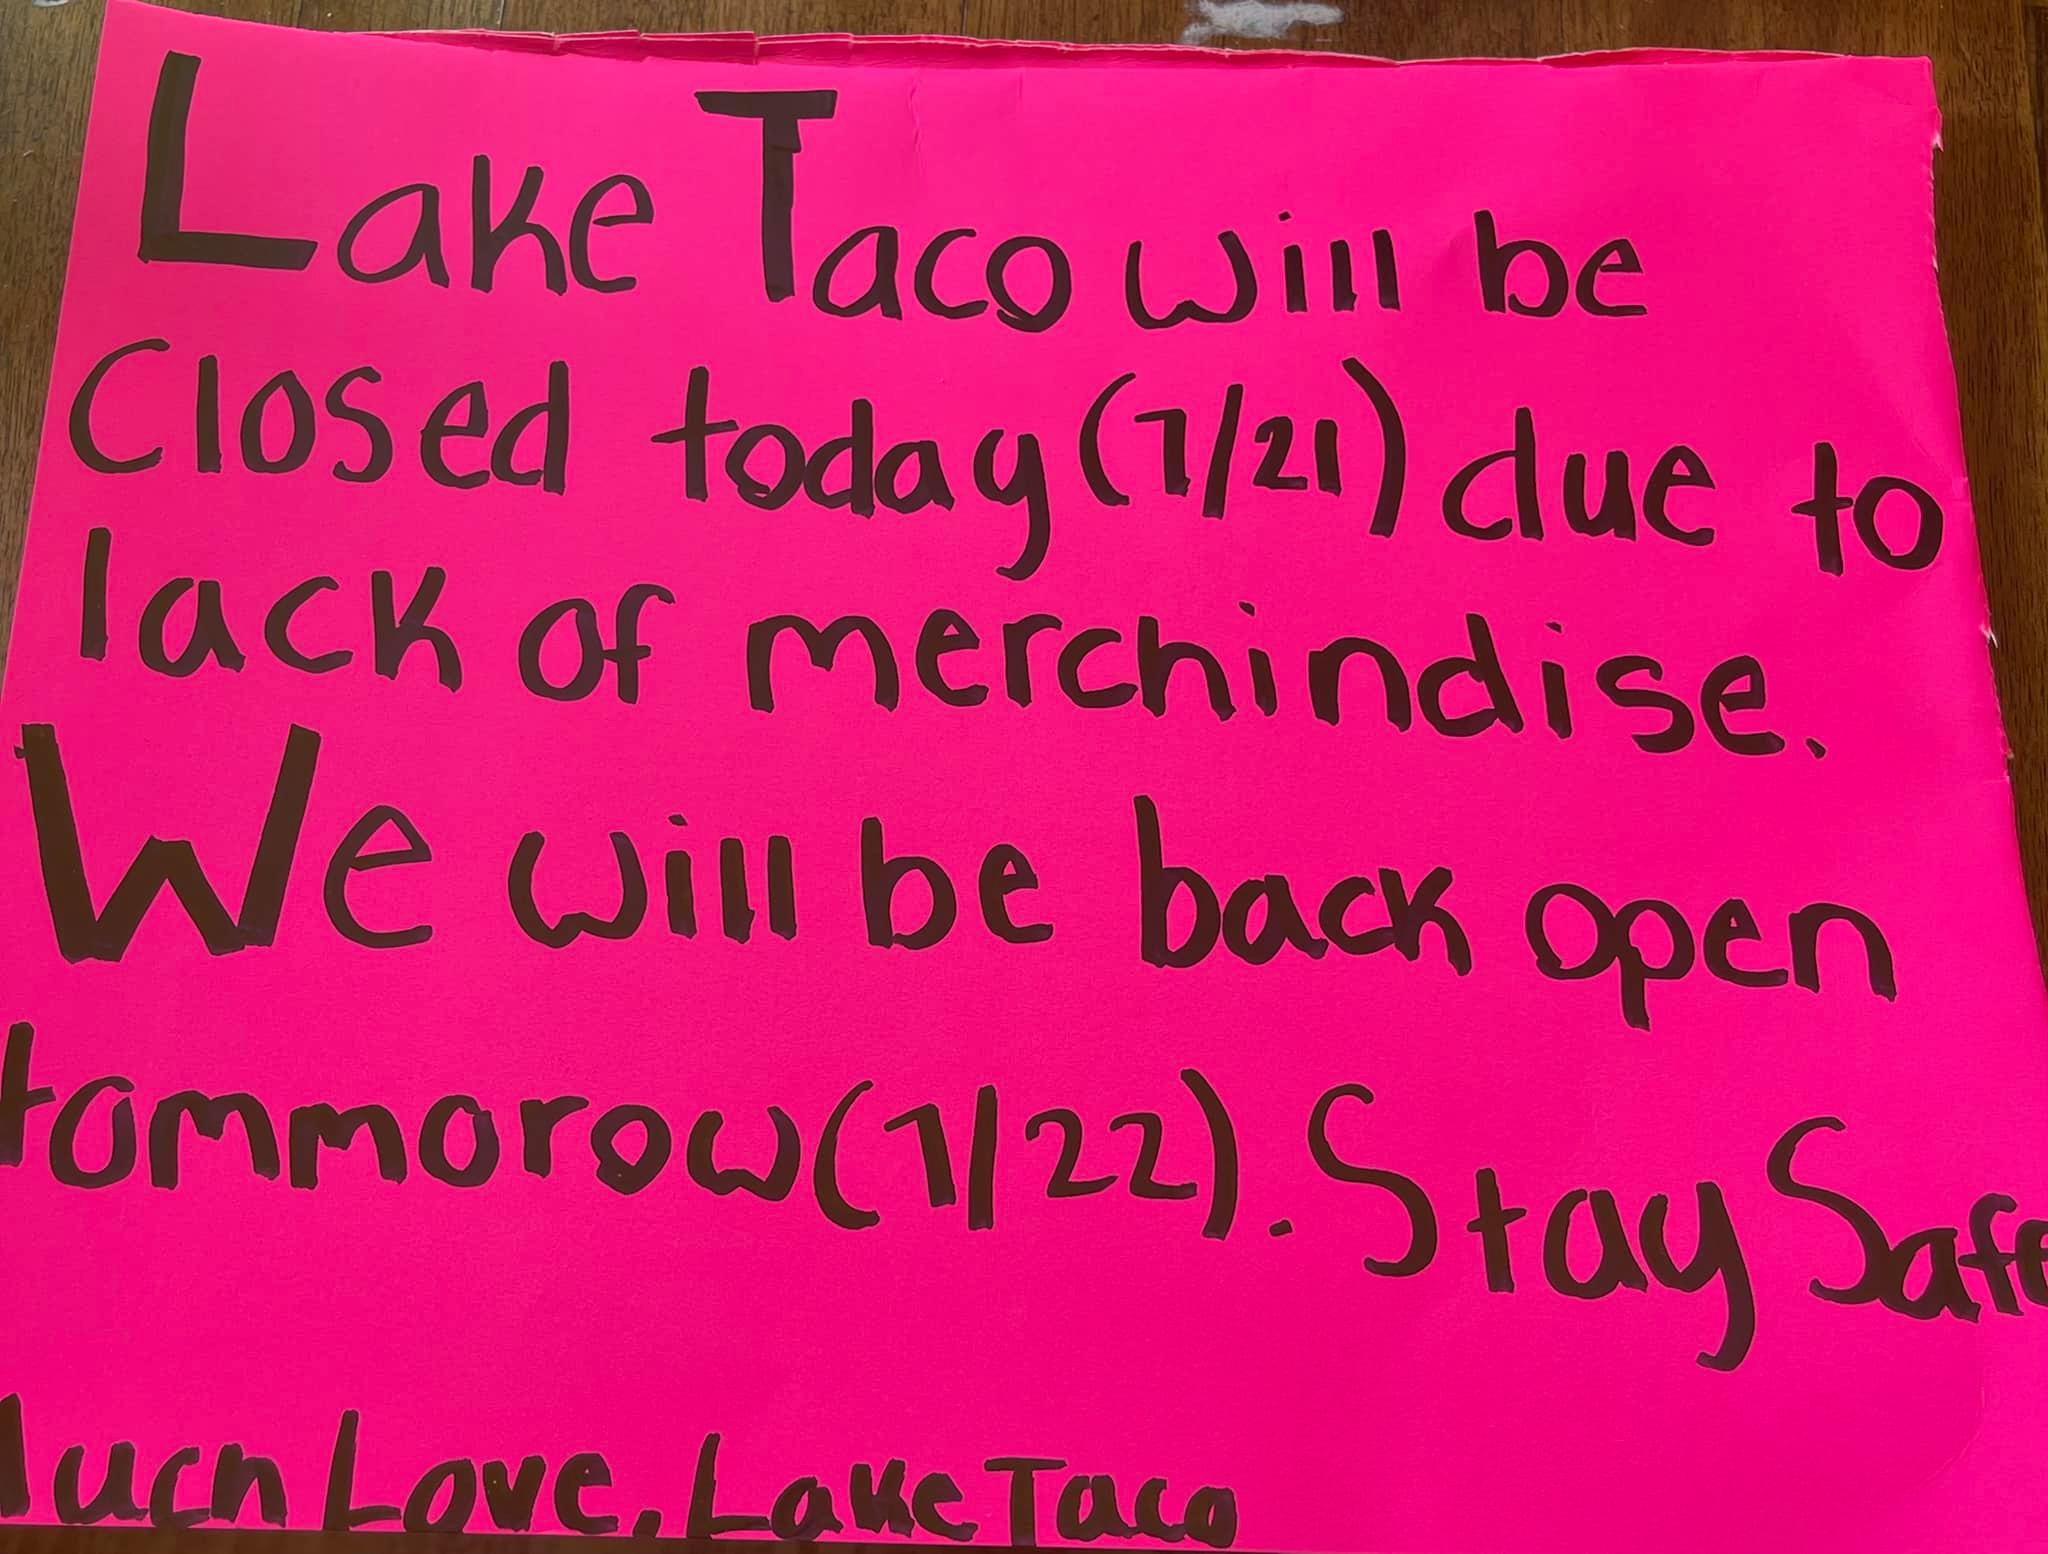 Lake Taco will be
closed today (7/21) due to
lack of merchindise.
We will be back open
tommorow (7/22). Stay Safe
Much Love, Lake Taco